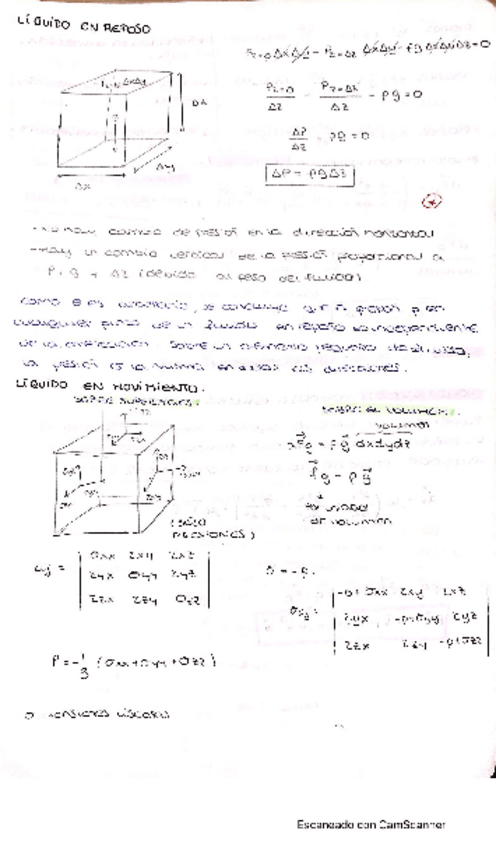 LÍQUIDO EN REPOSO
Pz=0 ΔxΔy - Pz=Δz ΔxΔy - ρg ΔxΔyΔz = 0
Pz=0/Δz - Pz=Δz/Δz - ρg = 0
ΔxΔy
Δz
Δy
Δx
ΔP/Δz ρg = 0
ΔP = ρgΔz
(*)
No hay cambio de presión en la dirección horizontal
Hay un cambio vertical de la presión proporcional a
ρ, g y Δz (debido al peso del fluido)
Como θ es arbitrario, se concluye que la presión p en
cualquier punto de un fluido en reposo es independiente
de la orientación. Sobre un elemento pequeño de fluido,
la presión es la misma en todas las direcciones.
LÍQUIDO EN MOVIMIENTO.
SOBRE SUPERFICIES:
SOBRE EL VOLUMEN:
volumen
dFg = ρg dxdydz
fg = ρg
por unidad
de volumen
(SÓLO
TENSIONES)
τij = | σxx τxy τxz |
τyx σyy τyz
τzx τzy σzz
σ = -p.
σij = | -p+σxx τxy τxz |
τyx -p+σyy τyz
τzx τzy -p+σzz
P = -1/3 (σxx+σyy+σzz)
tensiones viscosas
Escaneado con CamScanner